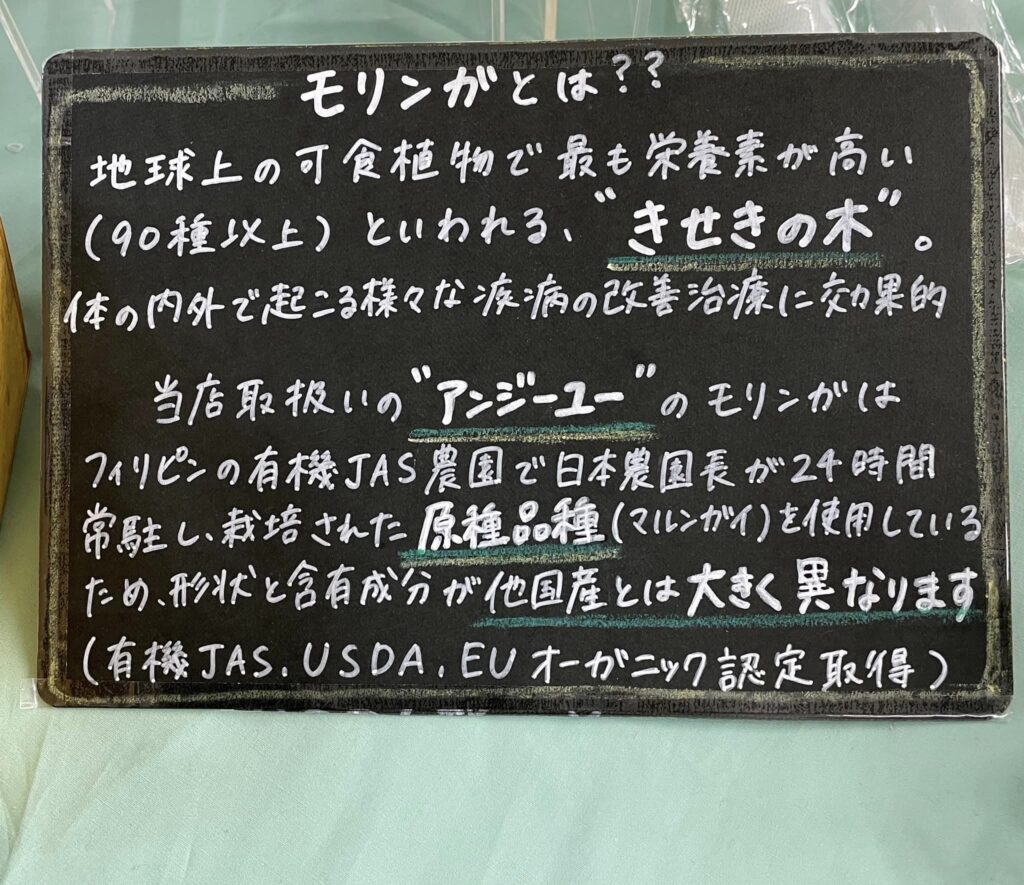 モリンガとは??
地球上の可食植物で最も栄養素が高い
(90種以上)といわれる、"きせきの木"。
体の内外で起こる様々な疾病の改善治療に効果的
当店取扱いの"アンジーユー"のモリンガは
フィリピンの有機JAS農園で日本農園長が24時間
常駐し、栽培された原種品種(マルンガイ)を使用している
ため、形状と含有成分が他国産とは大きく異なります
(有機JAS、USDA、EUオーガニック認定取得)